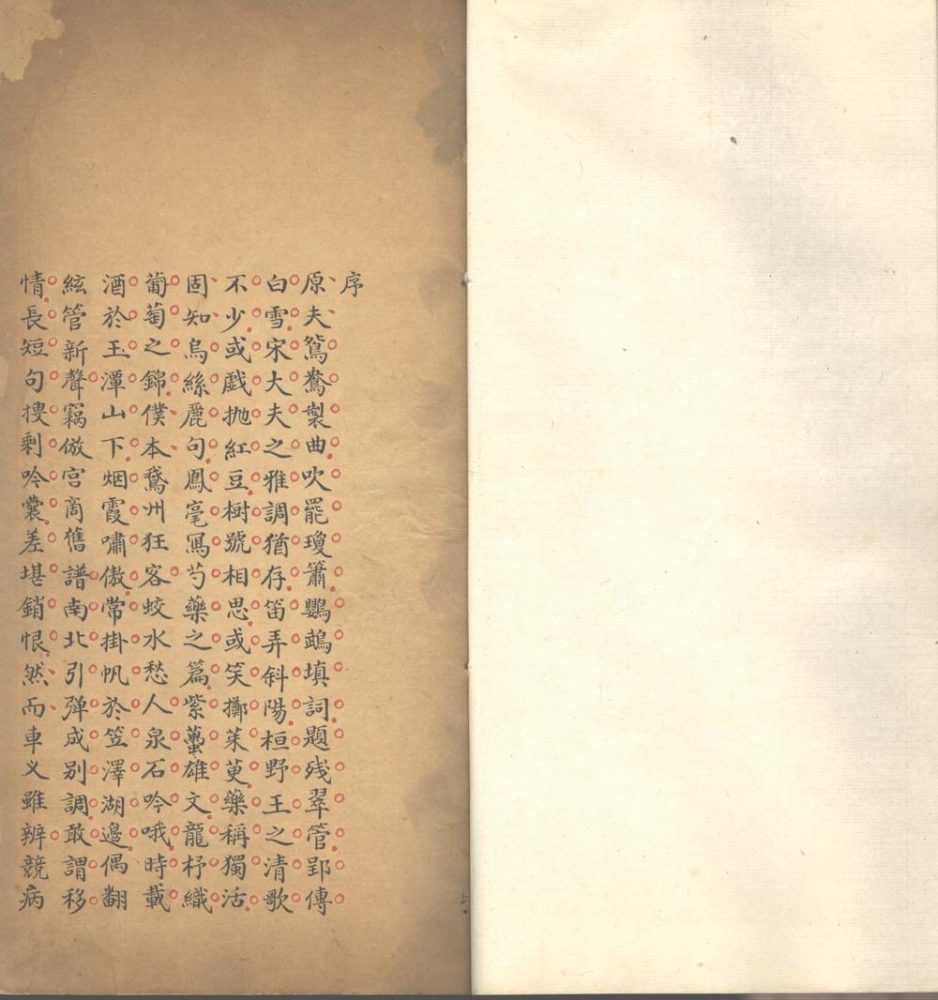 序
原夫鴛鴦製曲吹罷瓊簫鸚鵡填詞題残翠管郢傳
白雪宋大夫之雅調猶存笛弄斜陽桓野王之清歌
不少或戯抛紅豆樹號相思或笑擲茱萸藥稱獨活
固知烏絲麗句鳳毫寫芍藥之篇紫蠆雄文龍杼織
葡萄之錦僕本鵞州狂客蛟水愁人泉石吟哦時載
酒於玉潭山下烟霞嘯傲常掛帆於笠澤湖邊偶翻
絃管新聲竊倣宫商舊譜南北引弾成别調敢謂移
情長短句捜剩吟囊差堪銷恨然而車义雖辨競病